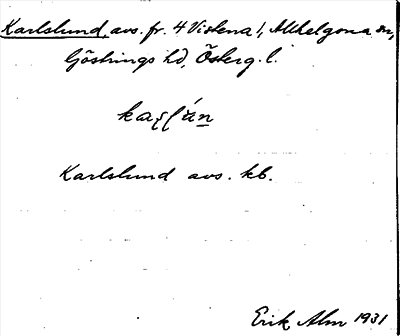 Karlslund, avs. fr. 4 Vistena 1, Allhelgona sn,
Göstrings hd, Österg. l.
Karlslund avs. kb.
Erik Alm 1931